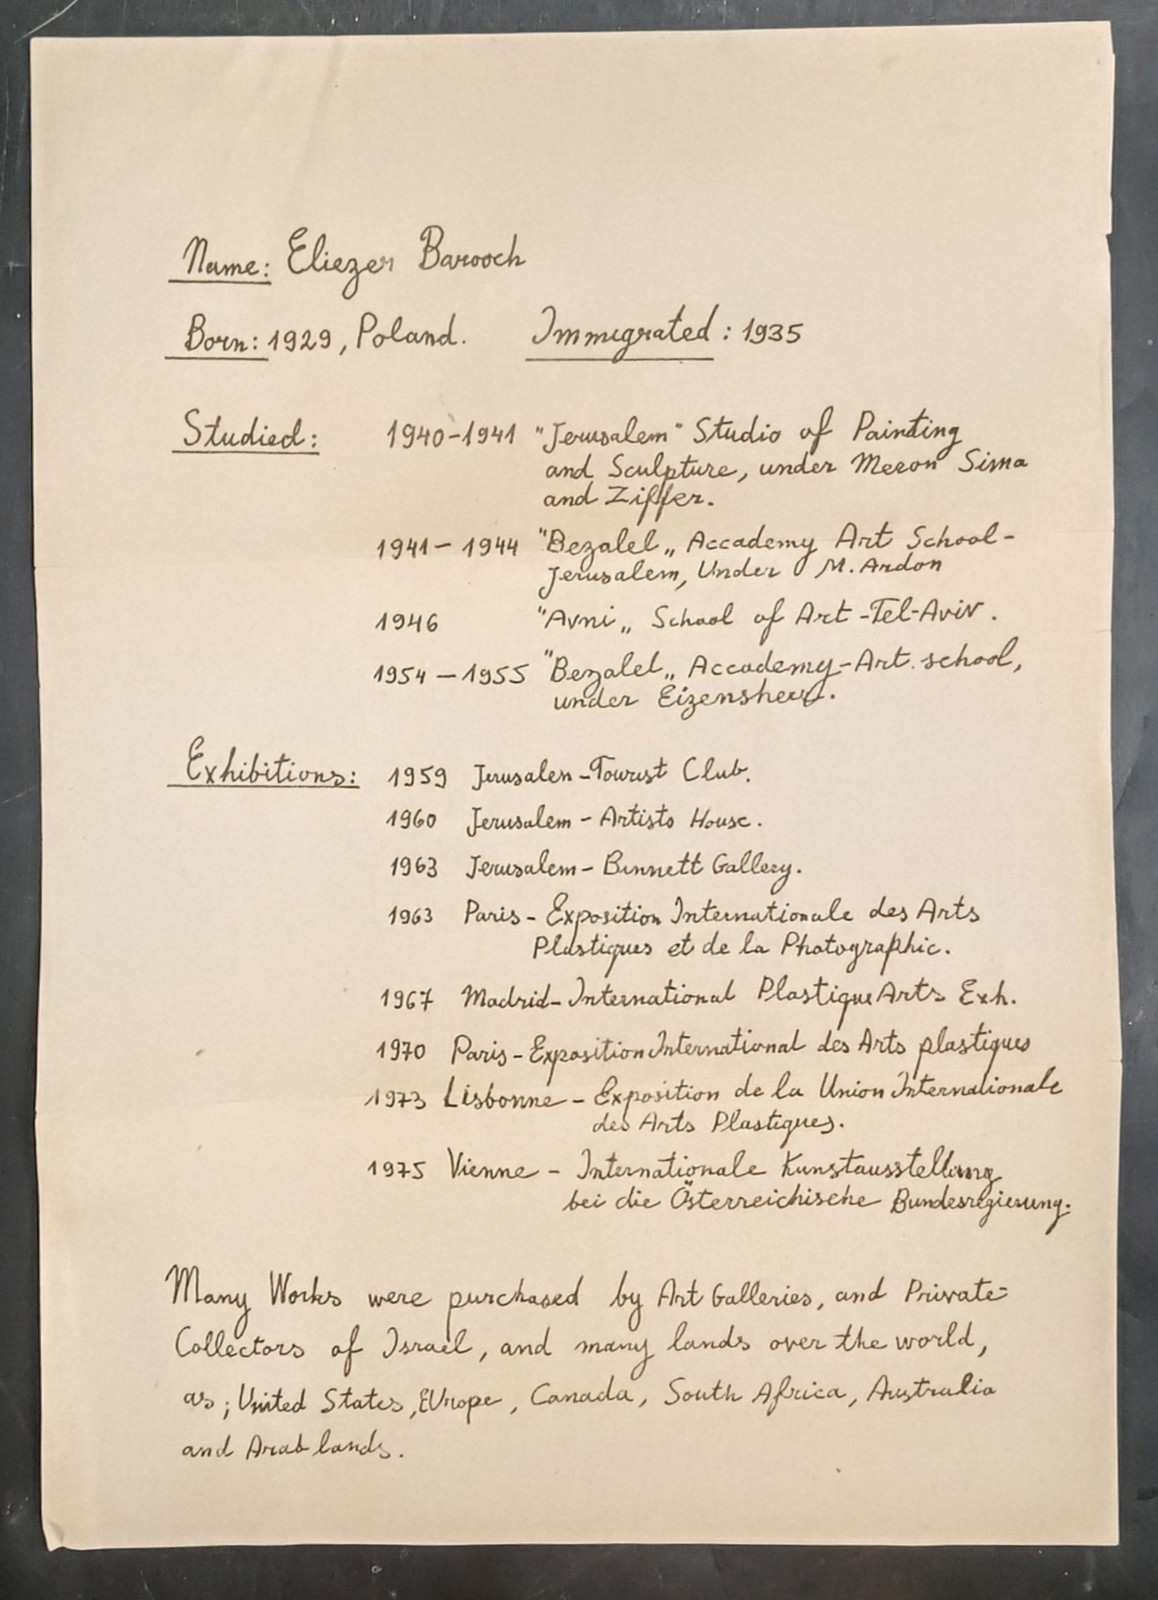 Name: Eliezer Barooch
Born: 1929, Poland. Immigrated: 1935
Studied: 1940-1941 "Jerusalem" Studio of Painting
and Sculpture, under Meron Sima
and Ziffer.
1941-1944 "Bezalel„ Accademy Art School-
Jerusalem, Under M. Ardon
1946 "Avni„ School of Art-Tel-Aviv.
1954-1955 "Bezalel„ Accademy-Art. school,
under
Exhibitions: 1959 Jerusalem-Tourist Club.
1960 Jerusalem-Artists House.
1963 Jerusalem- Gallery.
1963 Paris-Exposition Internationale des Arts
Plastiques et de la Photographic.
1967 Madrid-International Plastique Arts Exh.
1970 Paris-Exposition International des Arts plastiques
1973 Lisbonne-Exposition de la Union Internationale
des Arts Plastiques.
1975 Vienne-Internationale Kunstausstellung
bei die Österreichische Bundesregierung.
Many Works were purchased by Art Galleries, and Private-
Collectors of Israel, and many lands over the world,
as; United States, EUrope, Canada, South Africa, Australia
and Arab lands.